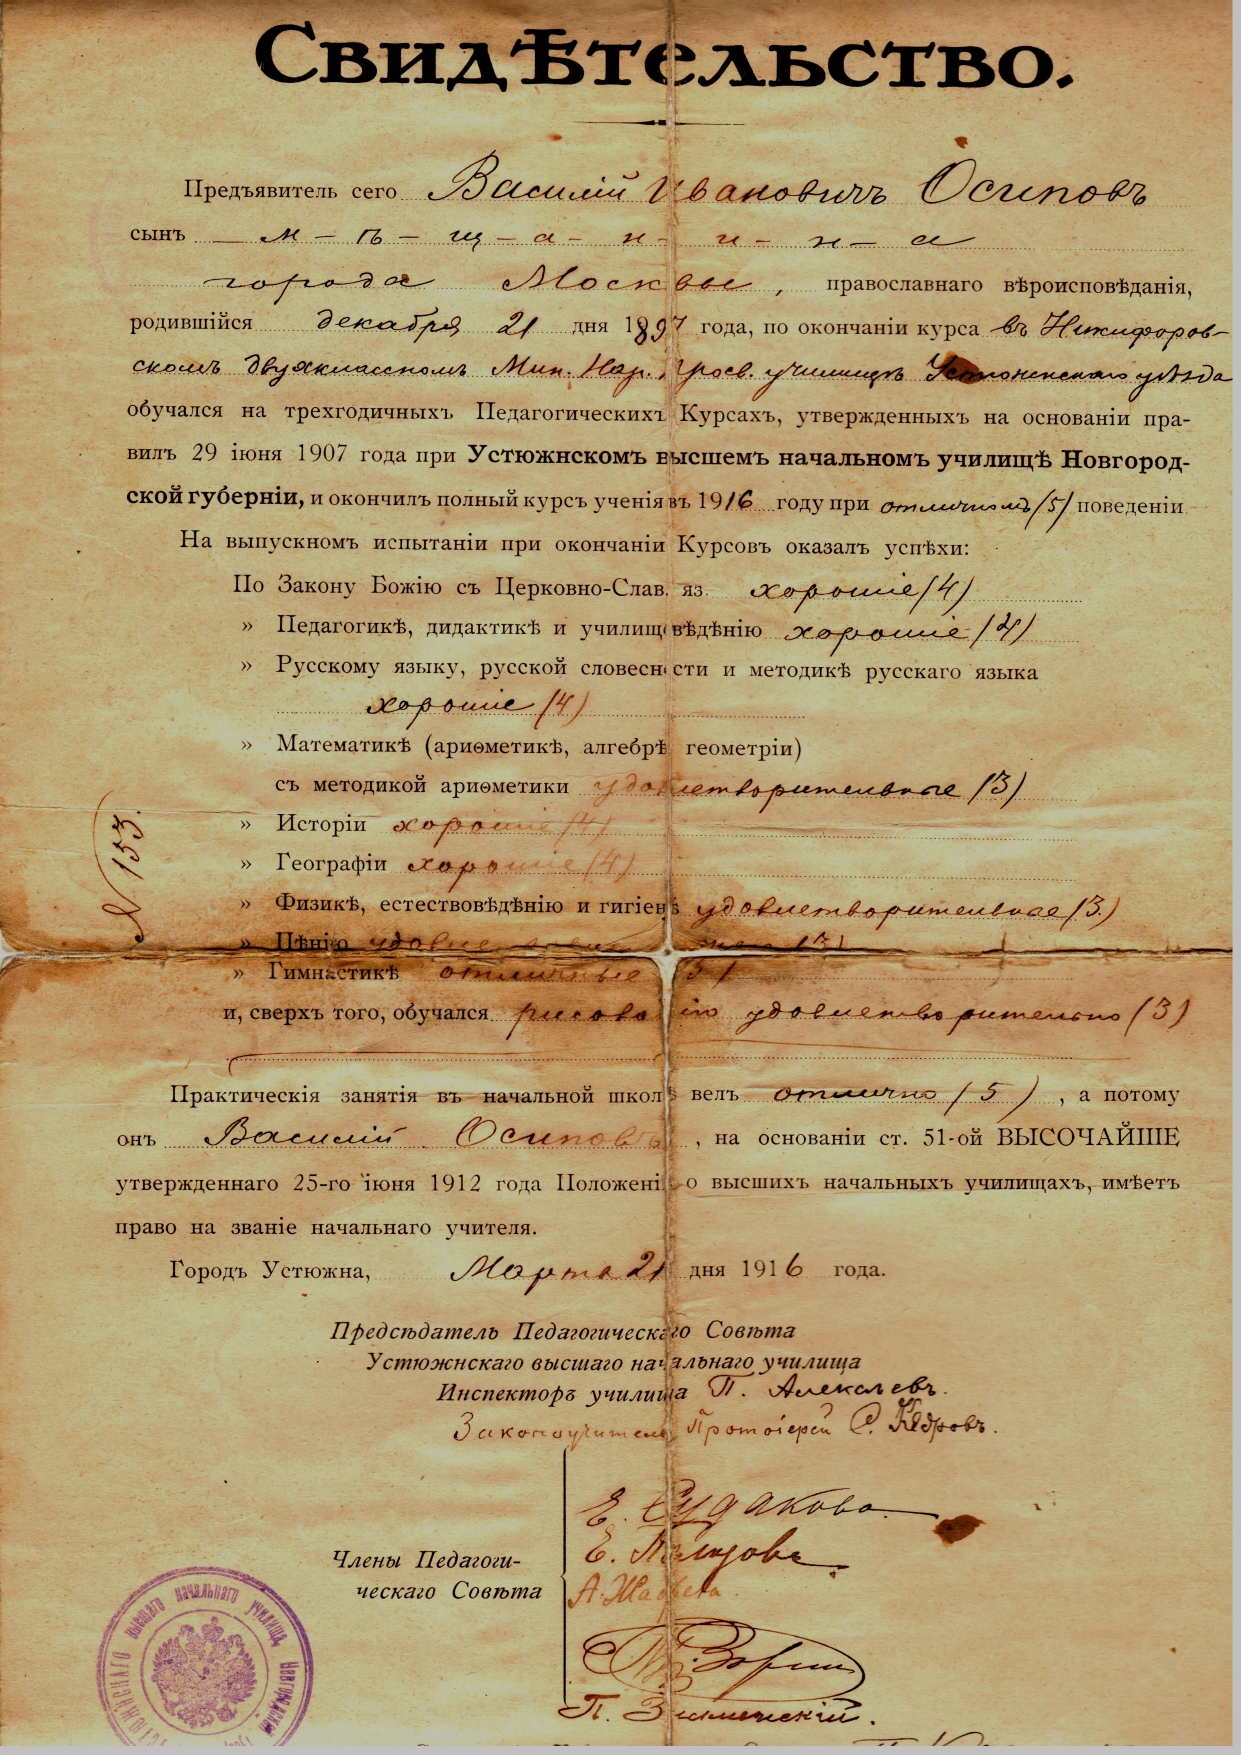 Свидѣтельство.
Предъявитель сего Василій Ивановичъ Осиповъ
сынъ м-ѣ-щ-а-н-и-н-а
города Москвы, православнаго вѣроисповѣданія,
родившійся декабря 21 дня 1897 года, по окончаніи курса въ Никифоров-
скомъ двухклассномъ Мин. Нар. Просв. училищѣ Устюженскаго уѣзда
обучался на трехгодичныхъ Педагогическихъ Курсахъ, утвержденныхъ на основаніи пра-
вилъ 29 іюня 1907 года при Устюжнскомъ высшемъ начальномъ училищѣ Новгород-
ской губерніи, и окончилъ полный курсъ ученія въ 1916 году при отличномъ (5) поведеніи
На выпускномъ испытаніи при окончаніи Курсовъ оказалъ успѣхи:
По Закону Божію съ Церковно-Слав. яз. хорошіе (4)
» Педагогикѣ, дидактикѣ и училищевѣдѣнію хорошіе (4)
» Русскому языку, русской словесности и методикѣ русскаго языка
хорошіе (4)
» Математикѣ (ариѳметикѣ, алгебрѣ геометріи)
съ методикой ариѳметики удовлетворительные (3)
» Исторіи хорошіе (4)
» Географіи хорошіе (4)
№ 153.
» Физикѣ, естествовѣдѣнію и гигіенѣ удовлетворительные (3)
» Пѣнію (3)
» Гимнастикѣ отличные (5)
и, сверхъ того, обучался рисованію удовлетворительно (3)
Практическія занятія въ начальной школѣ велъ отлично (5), а потому
онъ Василій Осиповъ, на основаніи ст. 51-ой ВЫСОЧАЙШЕ
утвержденнаго 25-го іюня 1912 года Положенія о высшихъ начальныхъ училищахъ, имѣетъ
право на званіе начальнаго учителя.
Городъ Устюжна, Марта 21 дня 1916 года.
Предсѣдатель Педагогическаго Совѣта
Устюжнскаго высшаго начальнаго училища
Инспекторъ училища П. Алексѣевъ.
Законоучитель Протоіерей С. Кедровъ.
Члены Педагоги-
ческаго Совѣта
Е. Судакова
Е.
А.
Зорин
П. Знаменскій.
Устюжнскаго высшаго начальнаго училища, Новгородской